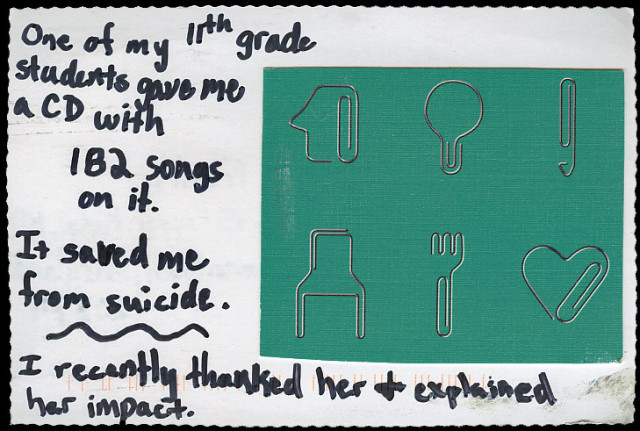 One of my 11th grade
students gave me
a CD with
182 songs
on it.
It saved me
from suicide.
I recently thanked her + explained
her impact.